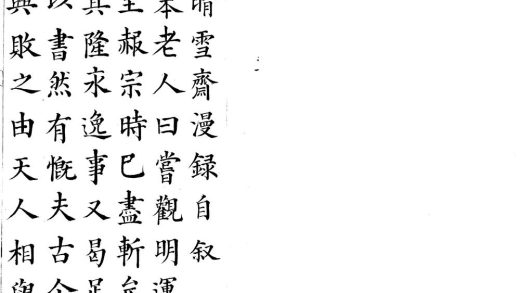 晴雪齋漫録自叙
本老人曰嘗觀明運
赧宗時已盡斬矣
其隆永逸事又曷足
以書然有慨夫古今
興敗之由天人相與